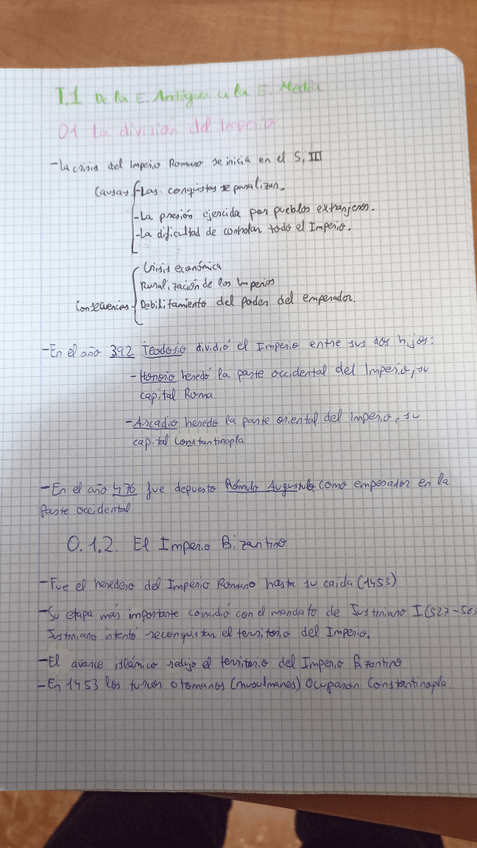 T.1 De la E. Antigua a la E. Media
01 La división del Imperio
-La crisis del Imperio Romano se inicia en el S, III
Causas -Las conquistas se paralizan.
-La presión ejercida por pueblos extranjeros.
-La dificultad de controlar todo el Imperio.
Crisis económica
Ruralización de los Imperios
Consecuencias Debilitamiento del poder del emperador.
-En el año 392 Teodosio dividió el Imperio entre sus dos hijos:
-Honorio heredó la parte occidental del Imperio, su
capital Roma
-Arcadio heredo la parte oriental del Imperio, su
capital Constantinopla
-En el año 476 fue depuesto Rómulo Augustulo como emperador en la
parte occidental
0.1.2. El Imperio Bizantino
-Fue el heredero del Imperio Romano hasta su caida (1453)
-Su etapa más importante coincidió con el mandato de Justiniano I (527-56
Justiniano intentó reconquistar el territorio del Imperio.
-El avance islámico redujo el territorio del Imperio Bizantino
-En 1453 los turcos otomanos (musulmanes) Ocuparon Constantinopla